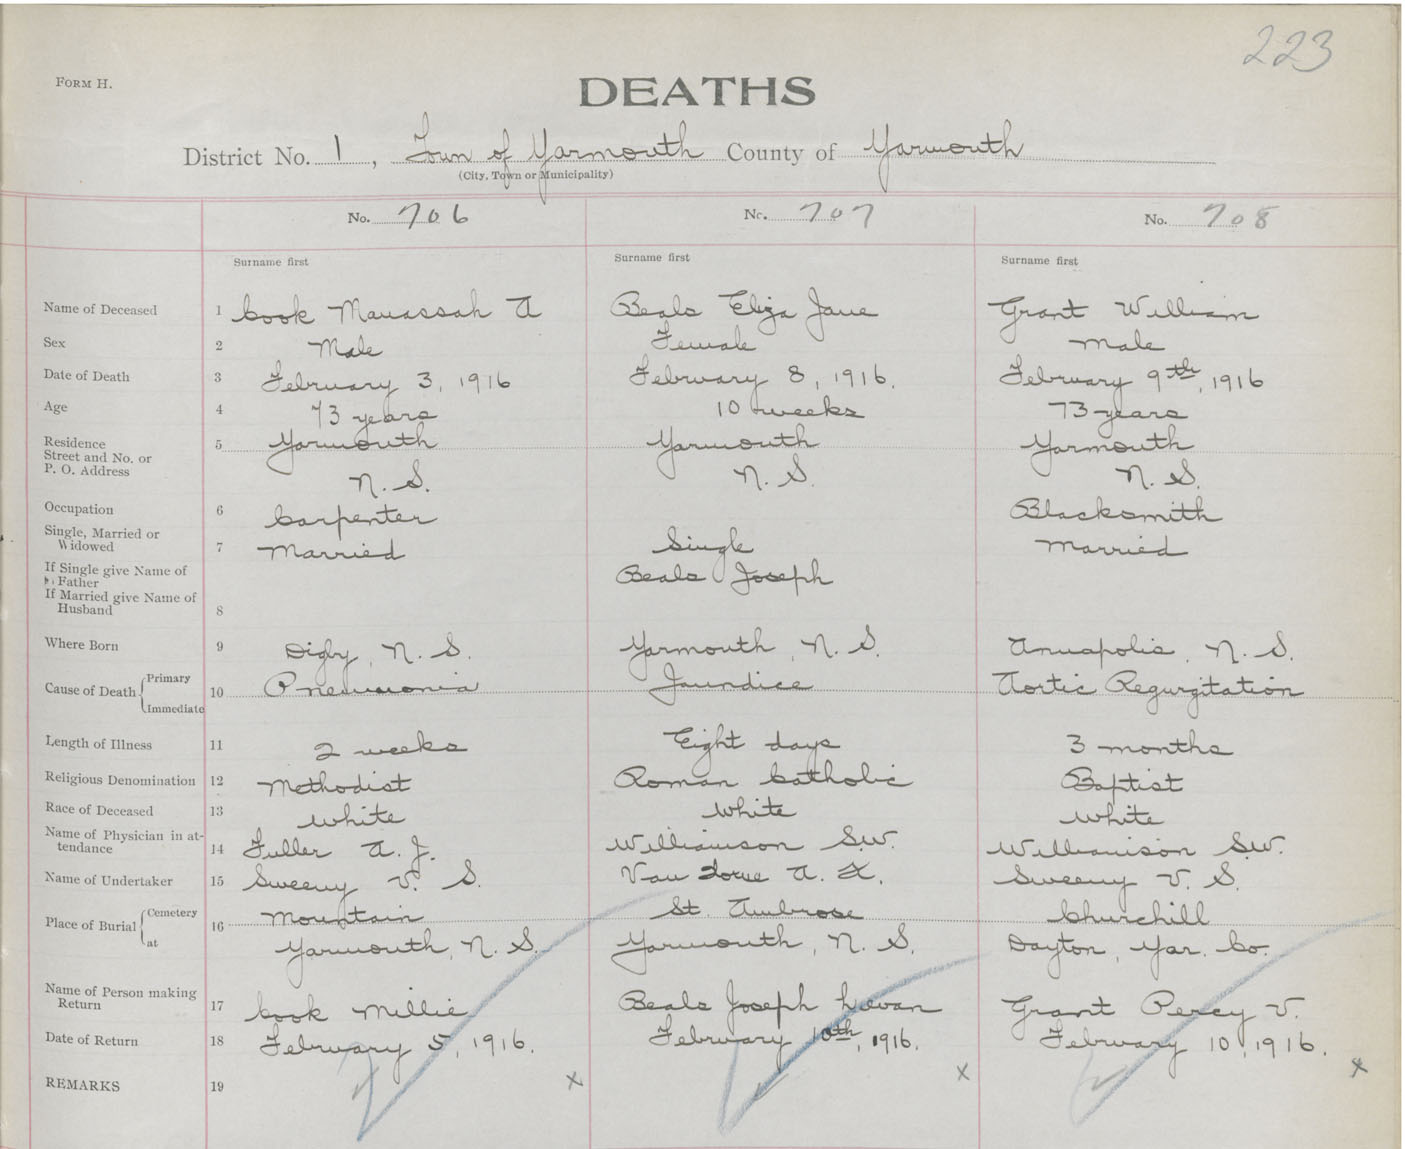 223
FORM H.
DEATHS
District No. 1, Town of Yarmouth County of Yarmouth
(City, Town or Municipality)
No. 706 No. 707 No. 708
Surname first Surname first Surname first
Name of Deceased 1 Cook Manassah A Beals Eliza Jane Grant William
Sex 2 Male Female Male
Date of Death 3 February 3, 1916 February 8, 1916. February 9th, 1916
Age 4 73 years 10 weeks 73 years
Residence 5 Yarmouth Yarmouth Yarmouth
Street and No. or
P. O. Address N. S. N. S. N. S.
Occupation 6 Carpenter Blacksmith
Single, Married or
Widowed 7 Married Single Married
If Single give Name of
Father Beals Joseph
If Married give Name of
Husband 8
Where Born 9 Digby, N. S. Yarmouth, N. S. Annapolis, N. S.
Cause of Death Primary 10 Pneumonia Jaundice Aortic Regurgitation
Immediate
Length of Illness 11 2 weeks Eight days 3 months
Religious Denomination 12 Methodist Roman Catholic Baptist
Race of Deceased 13 White White White
Name of Physician in at-
tendance 14 Fuller A. J. Williamson S.W. Williamson S.W.
Name of Undertaker 15 Sweeny V. S. Van Horne A. Sweeny V. S.
Place of Burial Cemetery 16 Mountain St. Ambrose Churchill
at Yarmouth, N. S. Yarmouth, N. S. Dayton, Yar. Co.
Name of Person making
Return 17 Cook Millie Beals Joseph Levan Grant Percy V.
Date of Return 18 February 5, 1916. February 10th, 1916. February 10, 1916.
REMARKS 19 x x x